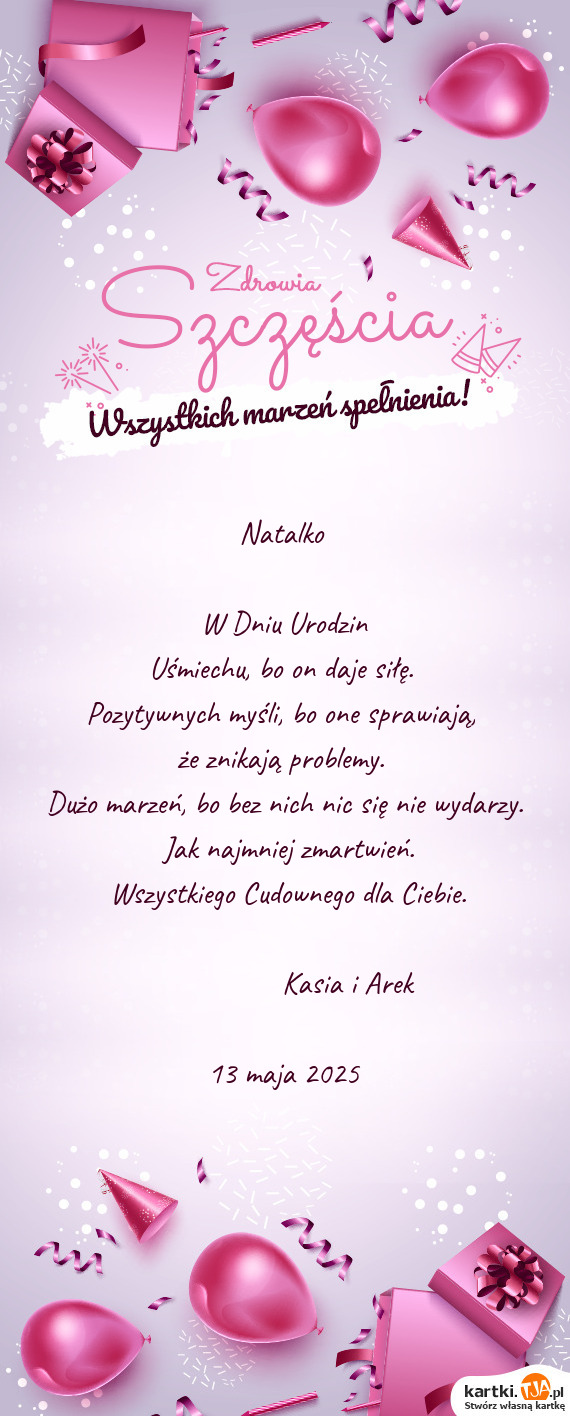 Zdrowia
Szczęścia
Wszystkich marzeń spełnienia!
Natalko
W Dniu Urodzin
Uśmiechu, bo on daje siłę.
Pozytywnych myśli, bo one sprawiają,
że znikają problemy.
Dużo marzeń, bo bez nich nic się nie wydarzy.
Jak najmniej zmartwień.
Wszystkiego Cudownego dla Ciebie.
Kasia i Arek
13 maja 2025
kartki.TJA.pl
Stwórz własną kartkę